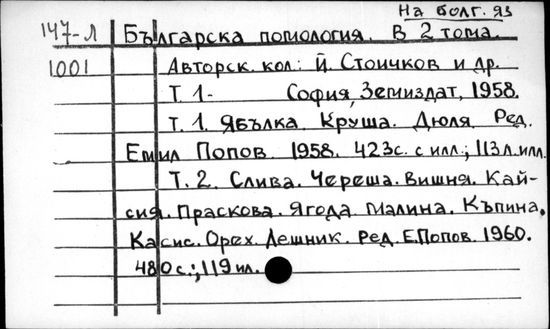 На болг. яз
147-Л Българска помология. В 2 тома.
1001 Авторск. кол: Й. Стоичков и др.
Т. 1- София, Земиздат, 1958.
Т. 1. Ябълка. Круша. Дюля. Ред.
Емил Попов. 1958. 423с. с илл.; 113л.илл.
Т. 2. Слива. Череша. Вишня. Кай-
сия. Праскова. Ягода. Малина. Къпина.
Касис. Орех. Лешник. Ред. Е.Попов. 1960.
480с.; 119 ил.